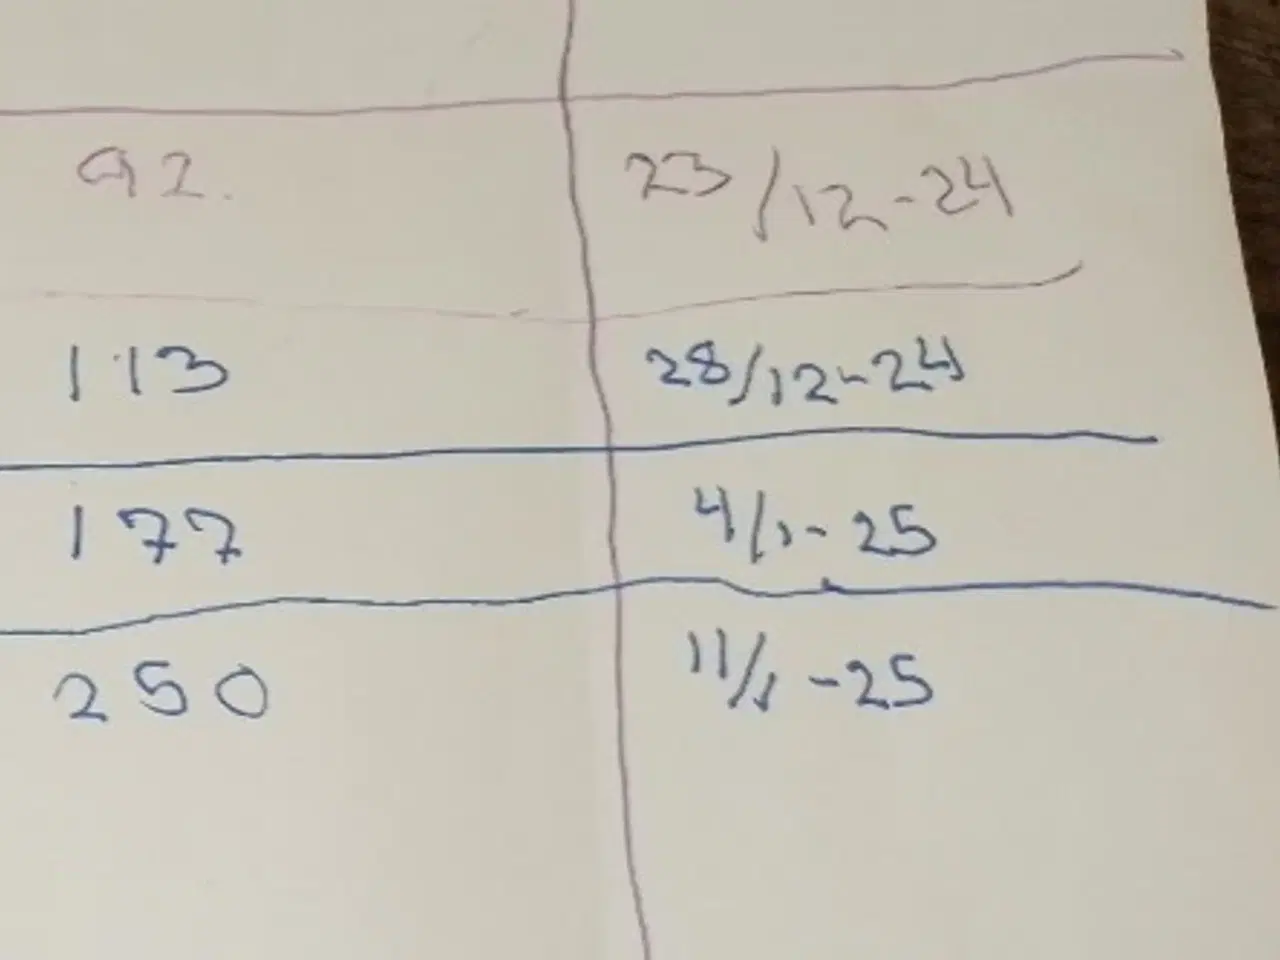 92. 23/12-24
113 28/12-24
177 4/1-25
250 11/1-25